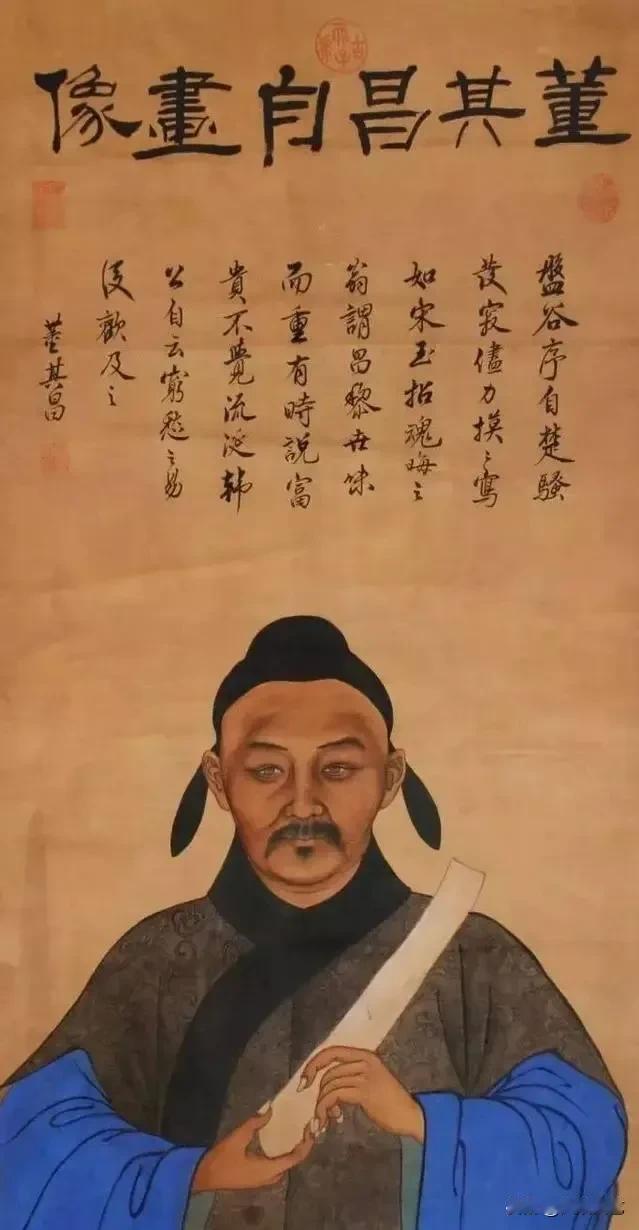 董其昌自畫像
盤谷序自楚騷
發寂儘力摸〻寫
如宋玉招魂晦之
翁謂昌黎世味
而重有時說富
貴不覺流涎韓
公自云窮愁之易
歡及之
董其昌